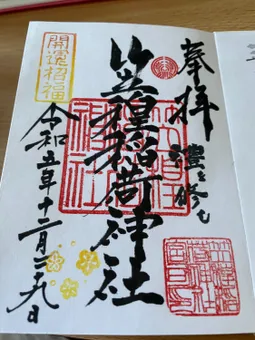 奉拝
禮を修む
笠䅣稲荷神社
開運招福
令和五年十二月二九日